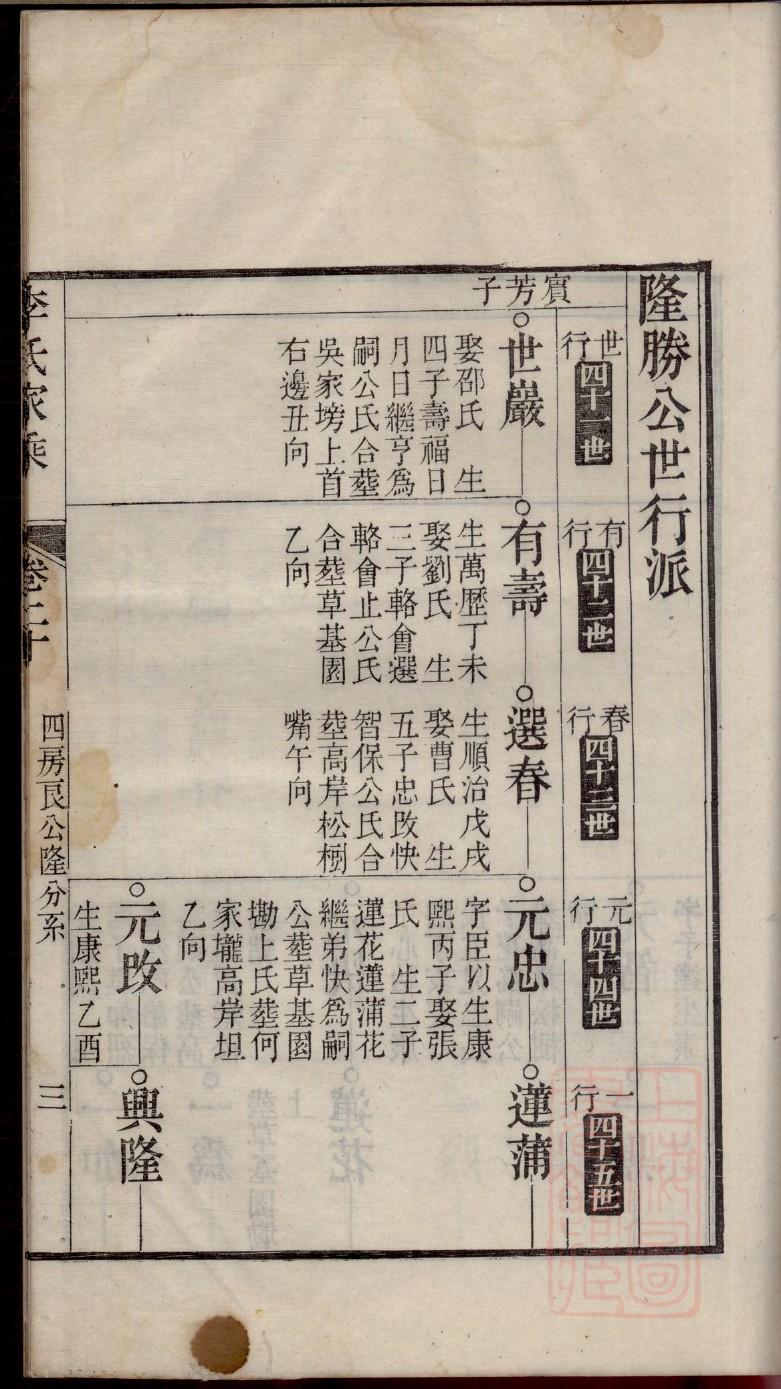 隆勝公世行派
世行
四十一世
有行
四十二世
春行
四十三世
元行
四十四世
一行
四十五世
賔芳子
世巖
娶邵氏 生
四子壽福日
月日繼亨爲
嗣公氏合塟
吳家塝上首
右邊丑向
有壽
生萬歷丁未
娶劉氏 生
三子輅會選
輅會止公氏
合塟草基園
乙向
選春
生順治戊戌
娶曹氏 生
五子忠攺快
智保公氏合
塟高岸松樹
嘴午向
元忠
字臣以生康
熙丙子娶張
氏 生二子
蓮花蓮蒲花
繼弟快爲嗣
公塟草基園
墈上氏塟何
家壠高岸坦
乙向
蓮蒲
元攺
生康熙乙酉
興隆
李氏家乘
卷二十
四房艮公隆分系
三